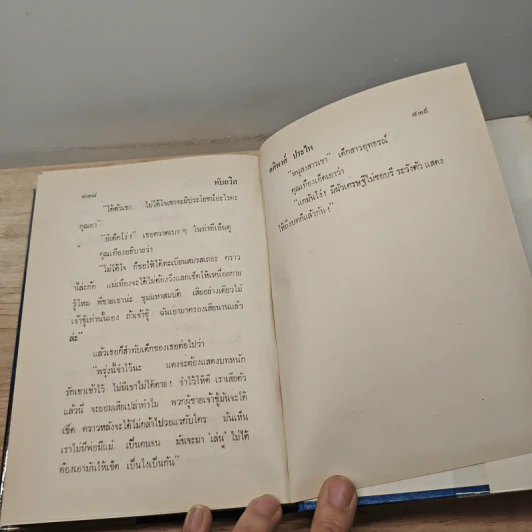 ๔๓๘ ทับถวิล
"ได้ตัวเขา ไม่ได้ใจเขาจะมีประโยชน์อะไรคะ
คุณยา"
"อีเด็กโง่!" เธอตวาดเบาๆ ในท่าทีเอ็นดู
คุณเทียงอธิบายว่า
"ไม่ได้ใจ ก็ขอให้ได้ทะเบียนสมรสเถอะ คราว
นี้ละก้อ แม่เทียงจะได้ไม่ต้องวิ่งแลกเช็คให้เหนื่อยกาย
รู้ไหม พี่ชายเขาน่ะ ขุมมหาสมบัติ เสียอย่างเดียวไม่
เจ้าชู้เท่านั้นเอง ถ้าเจ้าชู้ ฉันเอามาครองเสียนานแล้ว
ล่ะ"
แล้วเธอก็สำทับเด็กของเธอต่อไปว่า
"พรุ่งนี้จำไว้นะ แดงจะต้องแสดงบทหนัก
รักเขาเข้าไว้ ไม่มีเขาไม่ได้ตาย! จำไว้ให้ดี เราเสียตัว
แล้วนี่ จะยอมเสียเปล่าทำไม พวกผู้ชายเจ้าชู้มันจะได้
เข็ด คราวหลังจะได้ไม่กล้าไปวอแวกับใคร มันเห็น
เราไม่มีพ่อมีแม่ เป็นคนจน มันจะมา 'เล่น' ไม่ได้
ต้องเอามันให้เข็ด เป็นไงเป็นกัน"
๔๓๙
"หนูสงสารเขา" เด็กสาวอุทธรณ์
คุณเทียงเอ็ดเอาว่า
"แกมันโง่! มีผัวเศรษฐีไม่ชอบรึ ระวังตัว แสดง
ให้ถึงบทก็แล้วกัน!"